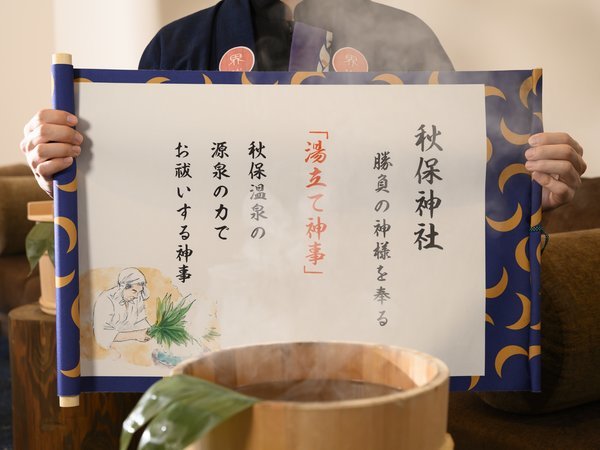 秋保神社
勝負の神様を奉る
「湯立て神事」
秋保温泉の
源泉の力で
お祓いする神事
界
界